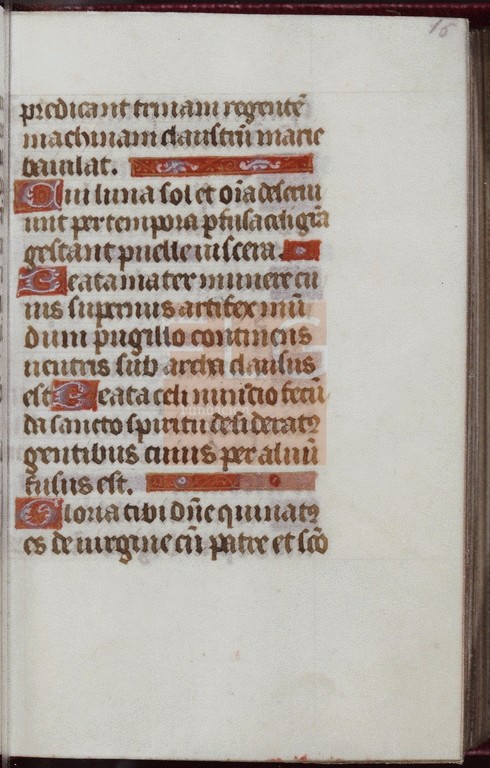 16
predicant trinam regentē
machinam claustrū marie
baiulat.
Cui luna sol et oīa deserui
unt per tempora ꝑfusa celi grā
gestant puelle uiscera.
Beata mater munere cu
ius supernus artifex mū
dum pugillo continens
uentris sub archa clausus
est Beata celi nuncio fecū
da sancto spiritu desideratꝯ
gentibus cuius per aluū
fusus est.
Gloria tibi dn̄e qui natꝯ
es de uirgine cū patre et scō